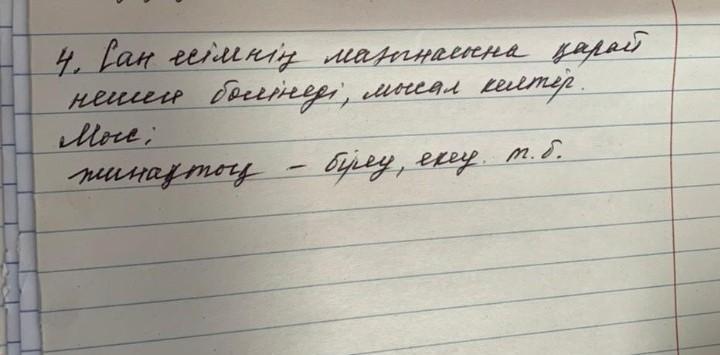 4. Сан есімнің мағынасына қарай
нешеге бөлінеді, мысал келтір.
Мыс:
жинақтау – біреу, екеу. т.б.